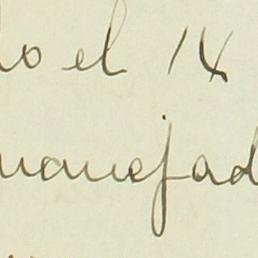 o el 14
manejad